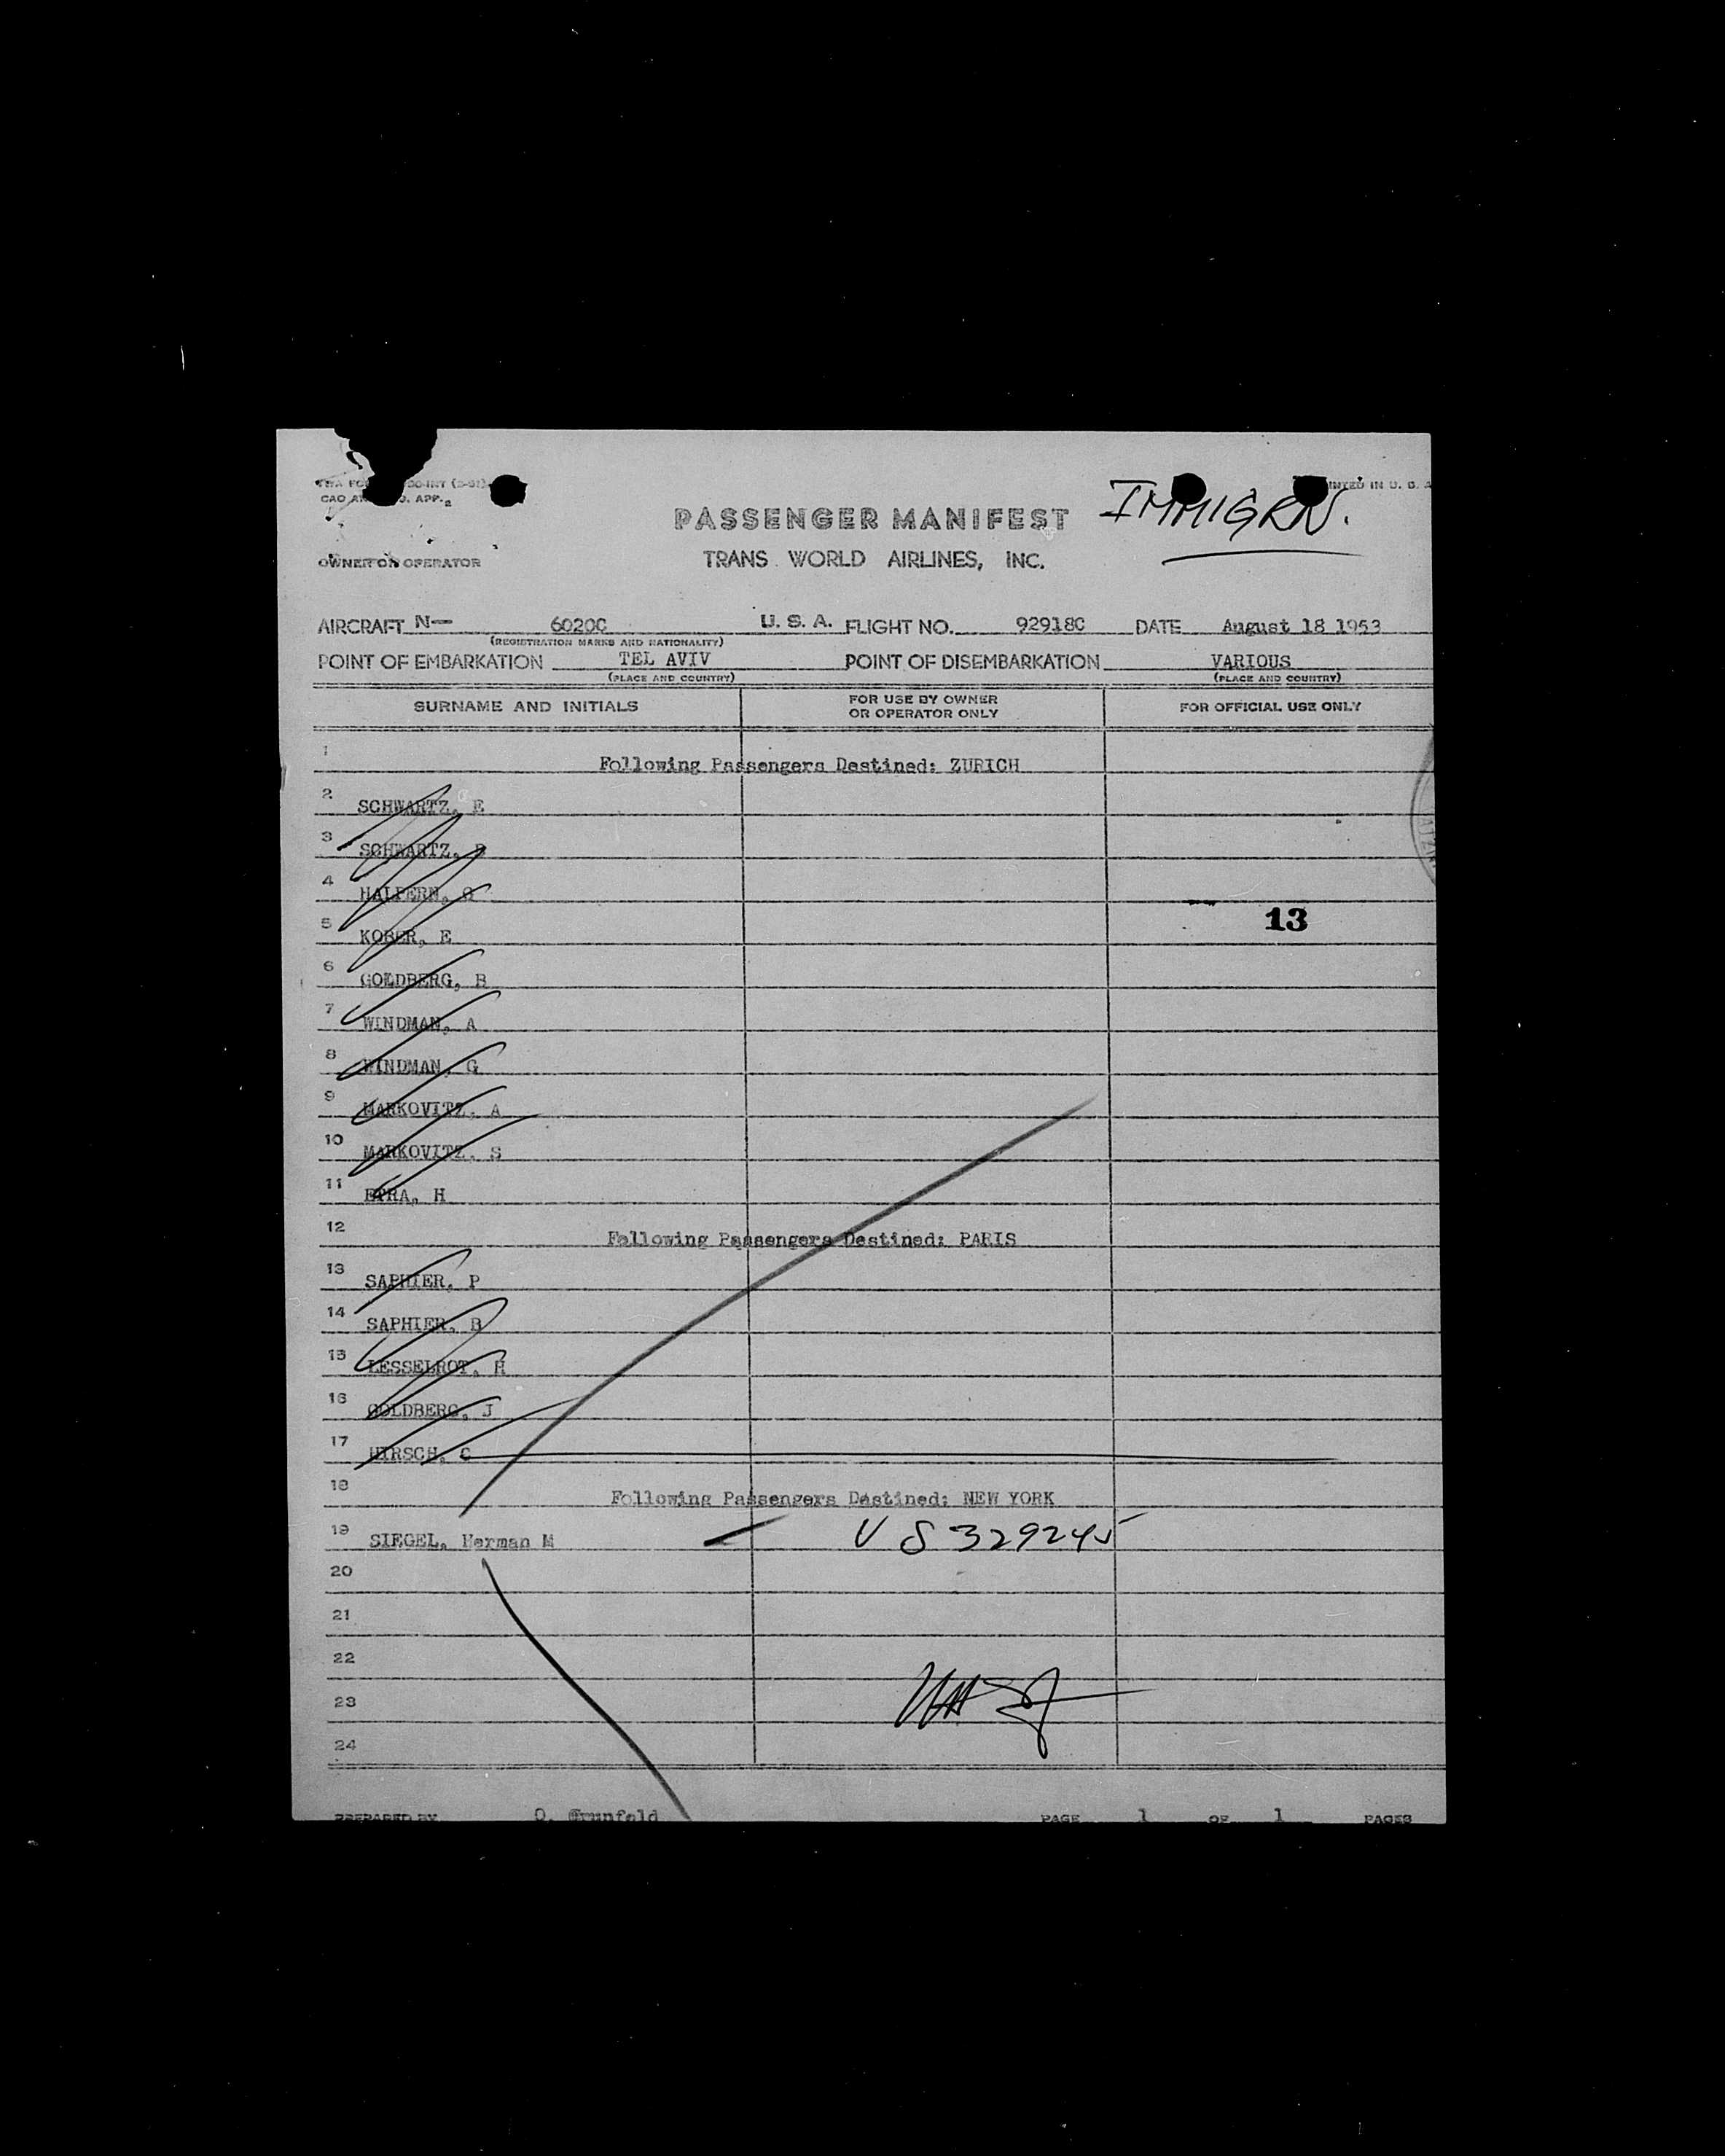 CAO
PASSENGER MANIFEST
IMMIGRN.
OWNER OR OPERATOR
TRANS WORLD AIRLINES, INC.
AIRCRAFT N— 6020C U. S. A. FLIGHT NO. 92918C DATE August 18 1953
(REGISTRATION MARKS AND NATIONALITY)
POINT OF EMBARKATION TEL AVIV POINT OF DISEMBARKATION VARIOUS
(PLACE AND COUNTRY) (PLACE AND COUNTRY)
SURNAME AND INITIALS FOR USE BY OWNER OR OPERATOR ONLY FOR OFFICIAL USE ONLY
1 Following Passengers Destined: ZURICH
2 SCHWARTZ, E
3 SCHWARTZ,
4 HALPERN, G
5 KOBER, E
13
6 GOLDBERG, B
7 WINDMAN, A
8 WINDMAN, G
9 MARKOVITZ, A
10 MARKOVITZ, S
11 H
12 Following Passengers Destined: PARIS
13 SAPHIER, P
14 SAPHIER, B
15 LESSELROT, H
16 GOLDBERG, J
17 HIRSCH, C
18 Following Passengers Destined: NEW YORK
19 SIEGEL, Herman M V S 329245
20
21
22
23
24
PREPARED BY O. Grunfeld PAGE 1 OF 1 PAGES